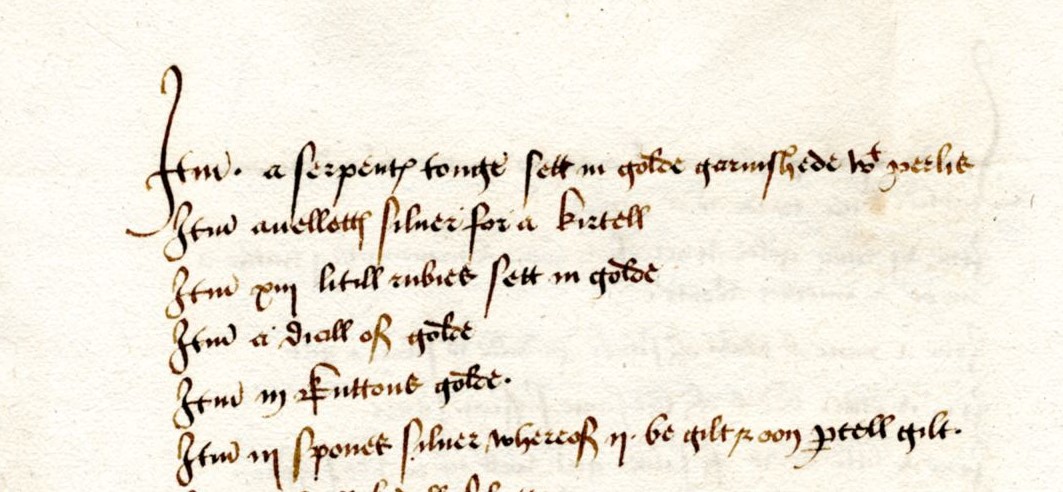 Itm̄. a serpentꝭ tonge sett in golde garnishede wᵗ perlis
Itm̄ auellettꝭ siluer for a kirtell
Itm̄ xiij litill rubies sett in golde
Itm̄ a diall of golde
Itm̄ iij buttons golde.
Itm̄ iij spones siluer whereof ij. be gilt & oon ꝑcell gilt.
Itm̄